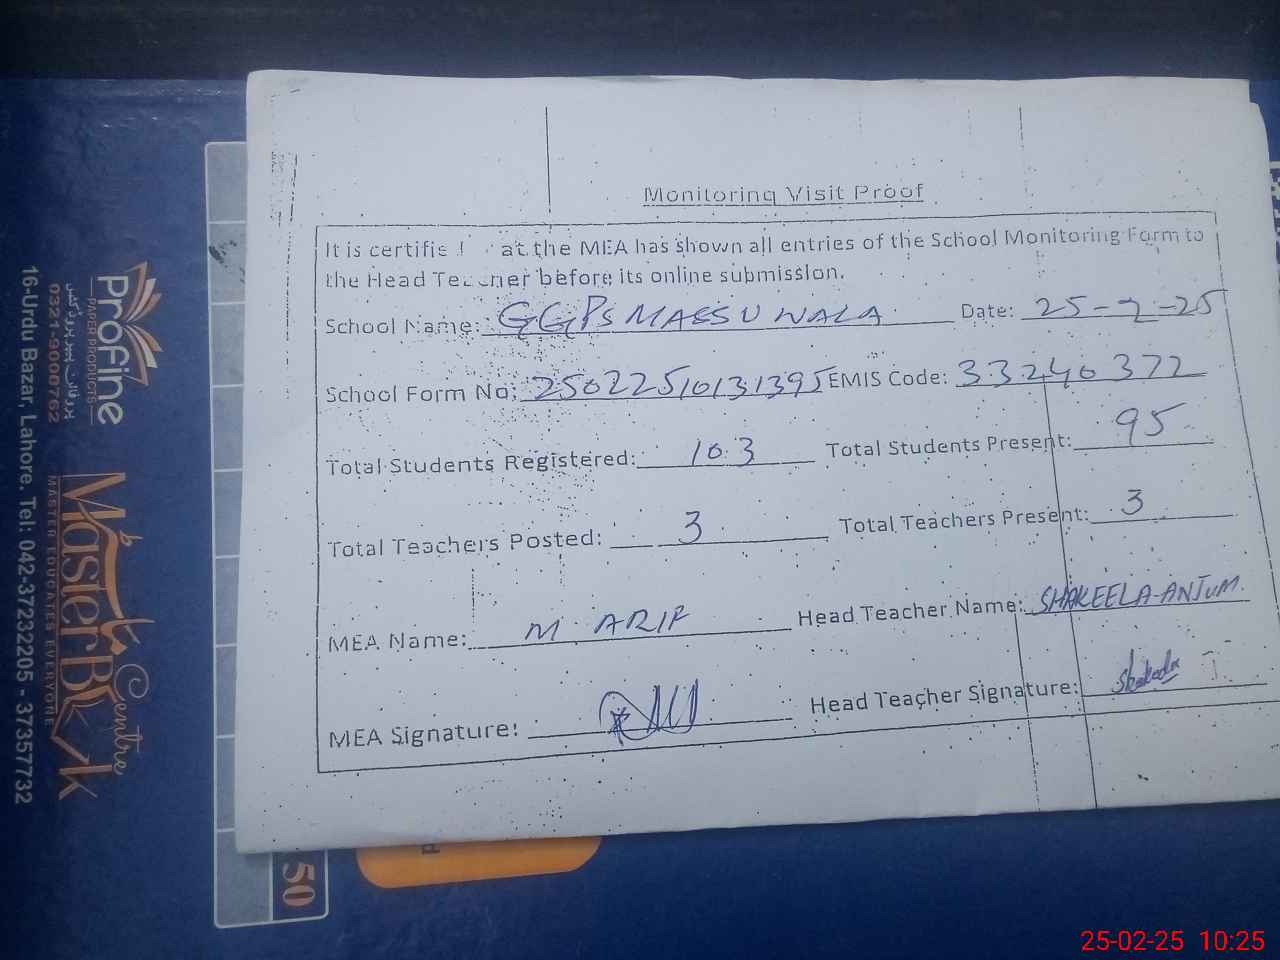 Monitoring Visit Proof
It is certifie at the MEA has shown all entries of the School Monitoring Form to
the Head Teacher before its online submission.
School Name: GGPS MASSUWALA Date: 25-2-25
School Form No: 25022510131395 EMIS Code: 33240372
Total Students Registered: 103 Total Students Present: 95
Total Teachers Posted: 3 Total Teachers Present: 3
MEA Name: M ARIF Head Teacher Name: SHAKEELA-ANJUM.
MEA Signature: Head Teacher Signature:
Profine
PAPER PRODUCTS
0321-9000762
Master Book Centre
MASTER EDUCATES EVERYONE
16-Urdu Bazar, Lahore. Tel: 042-37232205 - 37357732
50
25-02-25 10:25